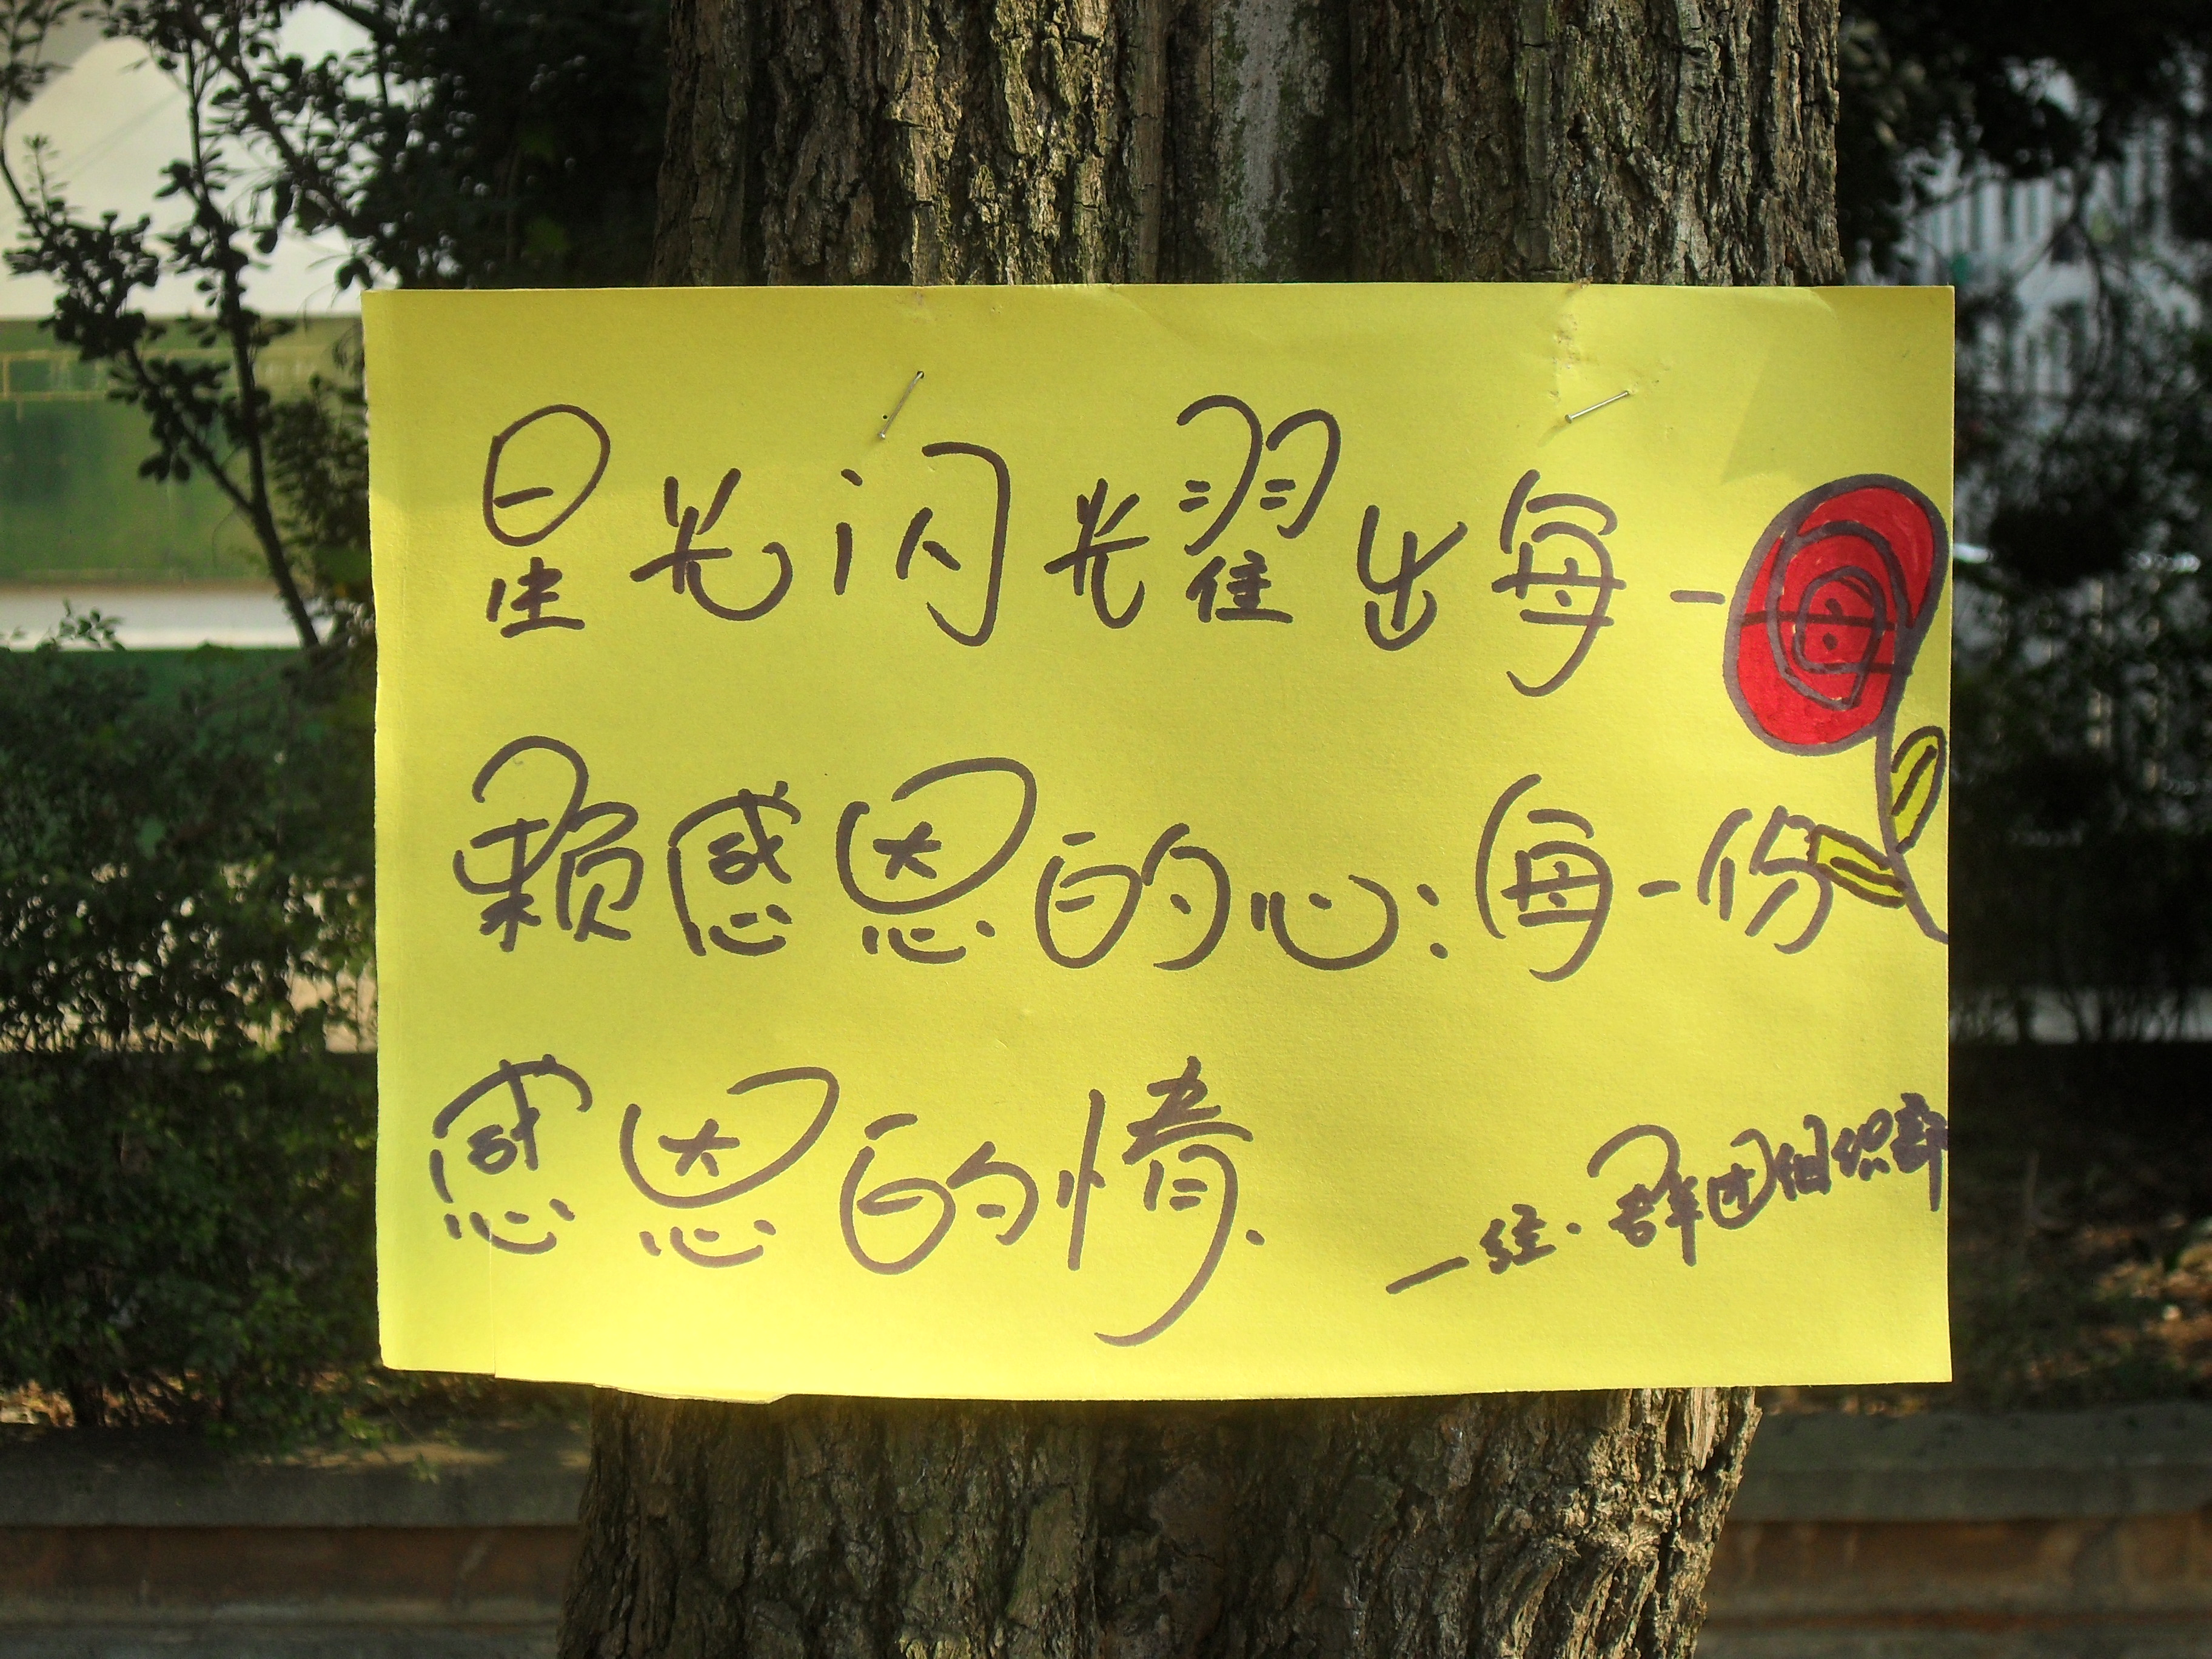 星光闪耀出每一
颗感恩的心:每一份
感恩的情.
—经.群团组织部